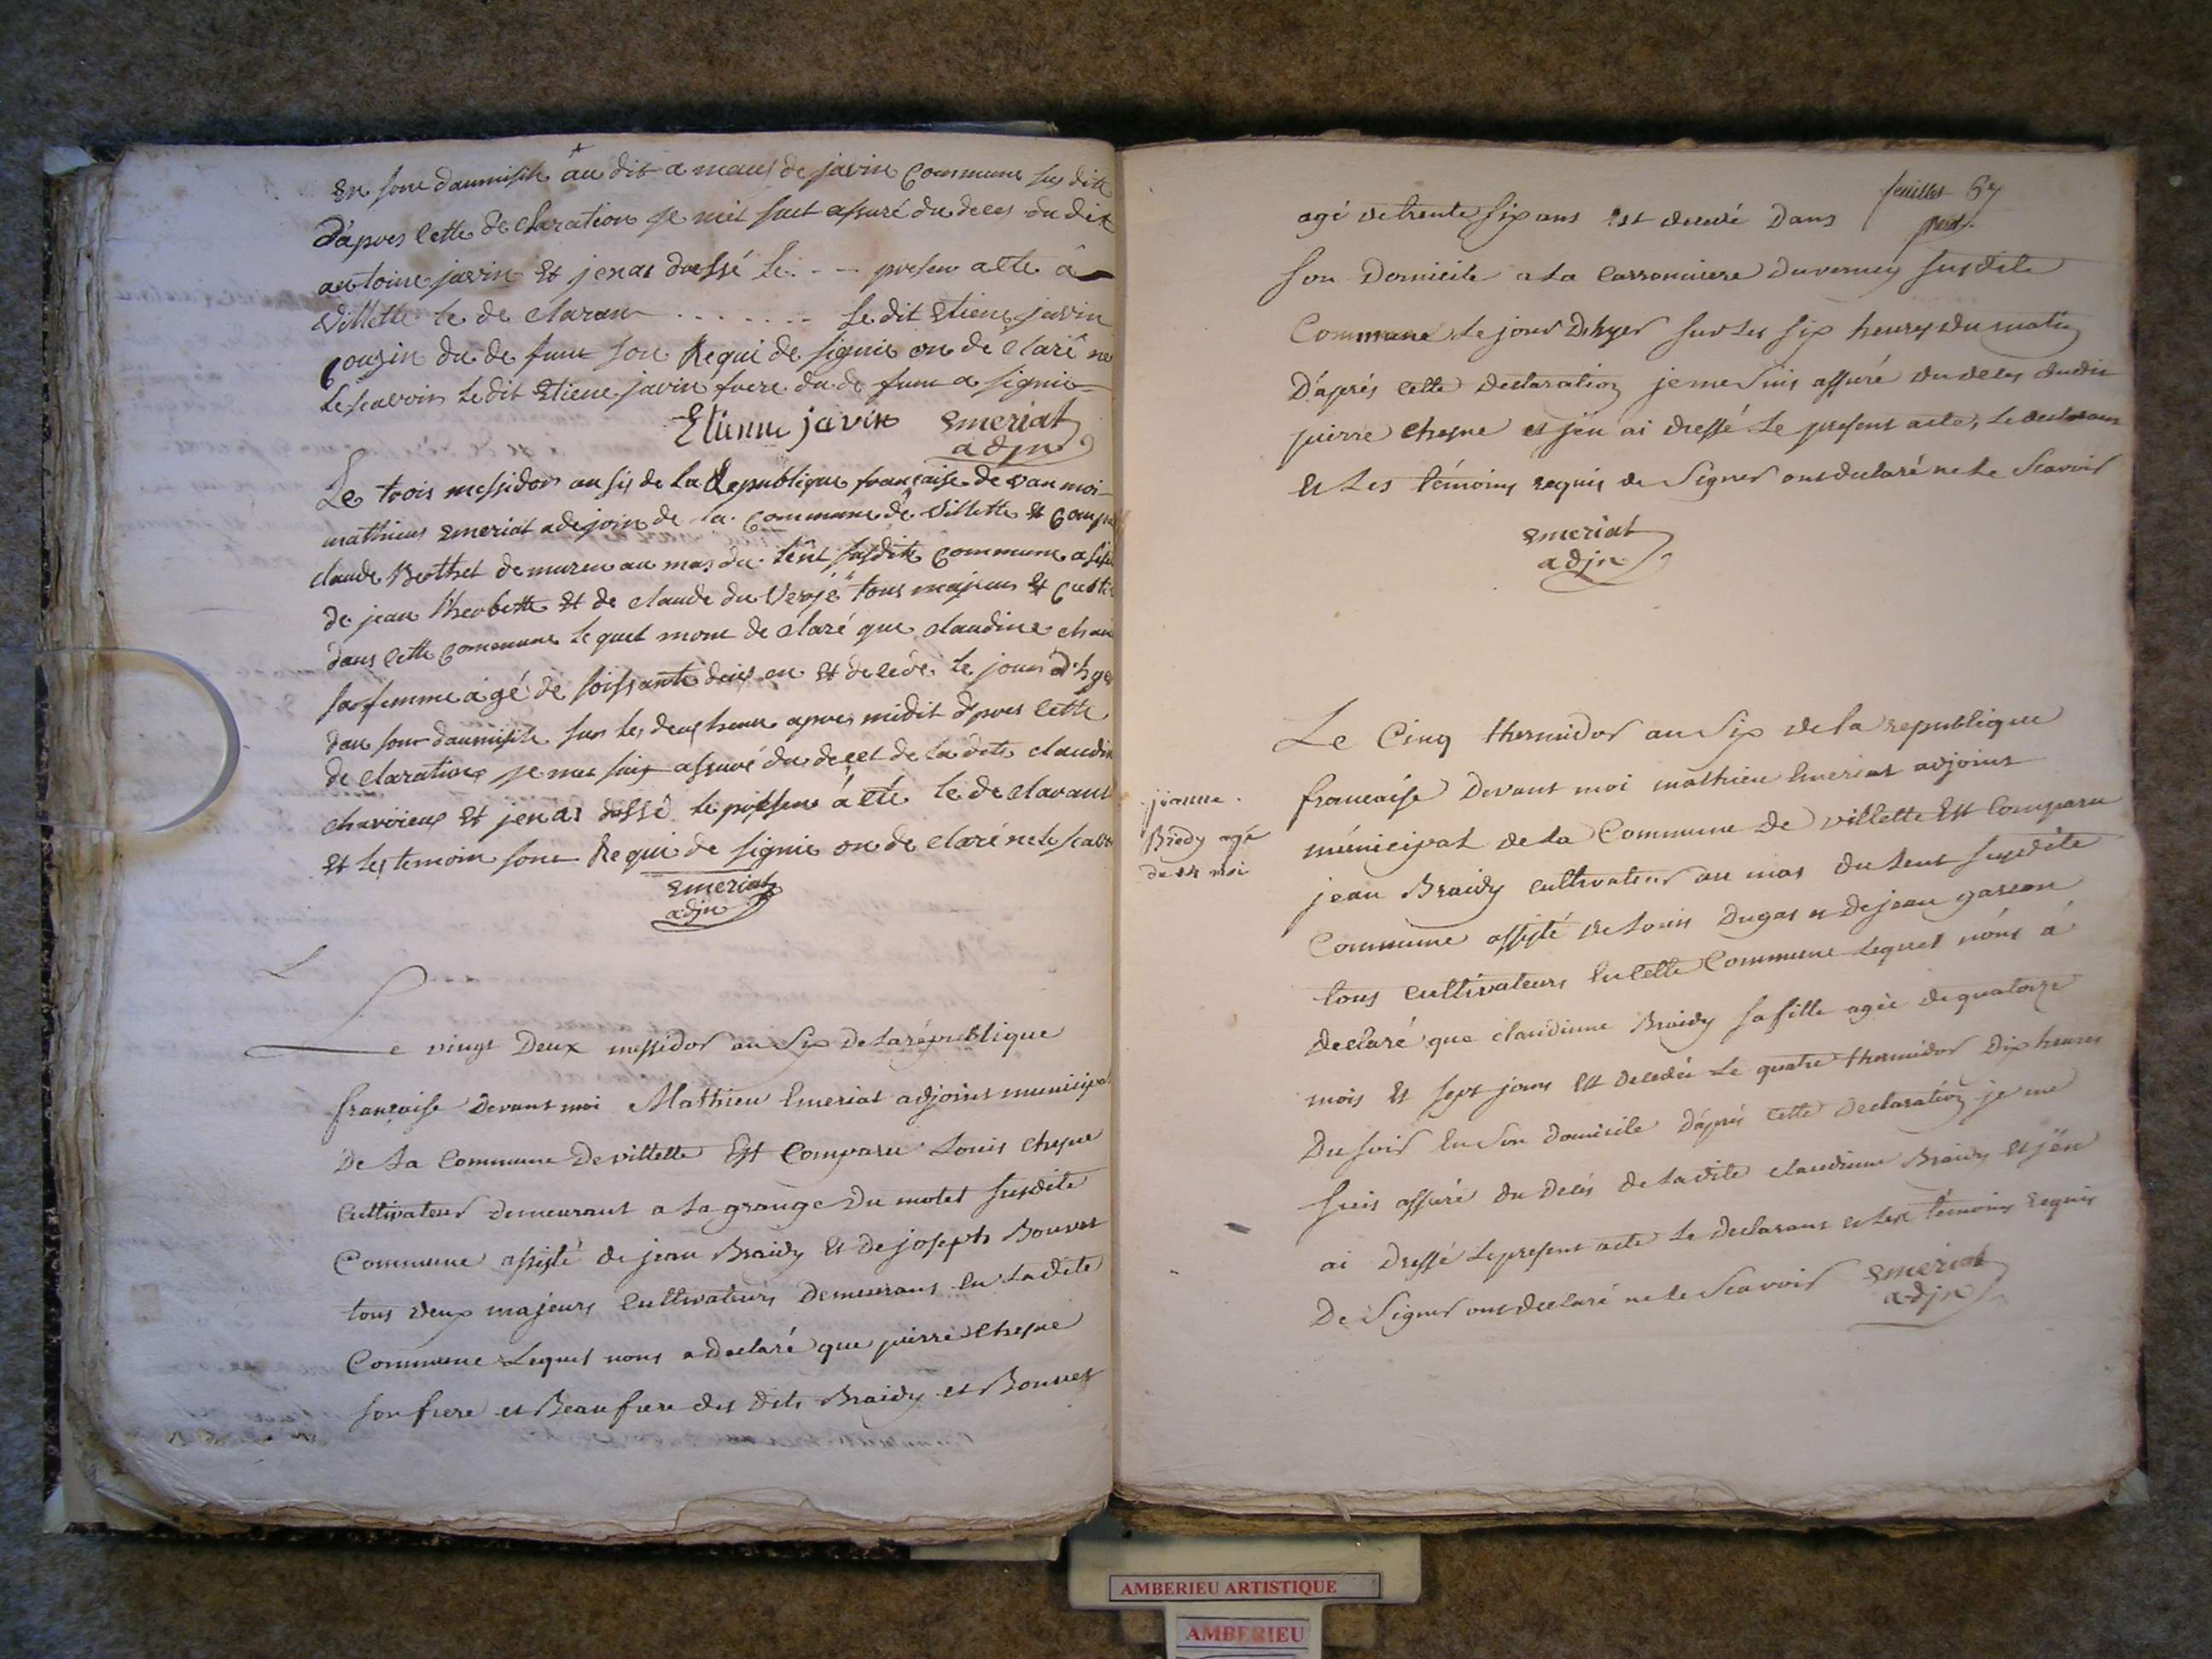 En sont daumisile au dit a maus de javin Commune sus dite
D'apres cette de claration je meit suit assuré du deces du dit
antoine javin Et jenai dressé le - - - presen acte â
Villette le de claran . . . . . . . le dit Etiene javin
Cousin du de funt son Requi de signie on de claré ne
le scavoir le dit Etiene javin frere du de funt a signie
Etienne javin Emeriat
adjn
Le trois messidor an six de la Republique française de van moi
mathieus Emeriat adejoin de la Commune de Villette Et Compa
claude Berthet demuren au mas du tent susdite commune asis
de jean therbette Et de claude du Verje tous majeurs Et Culti
dans cette commune le quel mont de claré que claudine
sa femme agé de soissante deux en Et de cede le jour d'hyer
dan sont daumisile sur les deux heure apres midit d'pres cette
de claration je me suis assuré du decet de la dite claudin
Et jenai dressé le presen acte le de clarant
Et les temoin sont Requi de signie on de claré ne le scav
Emeriat
adjn
L
Le vingt Deux messidor an Six De la république
française Devant moi Mathieu Emeriat adjoint municipal
De la Commune De villette Est Comparu Louis chesne
Cultivateur demeurant a la grange Du motet susdite
Commune assisté de jean Braidy Et De joseph Bouvet
tous deux majeurs Cultivateurs Demeurans En ladite
Commune Lequel nous a declaré que pierre chesne
son frere et Beau frere des dits Braidy et Bouvet
feuillet 67
agé de trente six ans Est decedé Dans
son Domicile a la Carronniere Duverney susdite
Commune le jour D'hyer sur les six heures du matin
D'après cette declaration je me suis assuré du deces dudit
pierre chesne et j'en ai dressé le present acte, le declarant
Et Les témoins requis de Signer ont declaré ne le Scavoir
Emeriat
adjn
Le Cinq thermidor an Six de la republique
francaise Devant moi mathieu Emeriat adjoint
múnicipal de la Commune De villette Est Comparu
jean Braidy cultivateur au mas du tent susdite
Commune assisté de Louis Dugas et De jean garcon
tous Cultivateurs En cette Commune Lequel nóus á
declaré que claudinne Braidy sa fille agée de quatorze
mois Et sept jours Est decedée Le quatre thermidor Dix heures
Du soir En son domicile D'après cette declaration je me
suis assuré du Decés de ladite claudinne Braidy Et j'én
ai Dressé le present acte le declarant et les témoins requis
De Signer ont declaré ne le Scavoir Emeriat
adjn
jeanne
Bredy agé
de 14 moi
AMBERIEU ARTISTIQUE
AMBERIEU